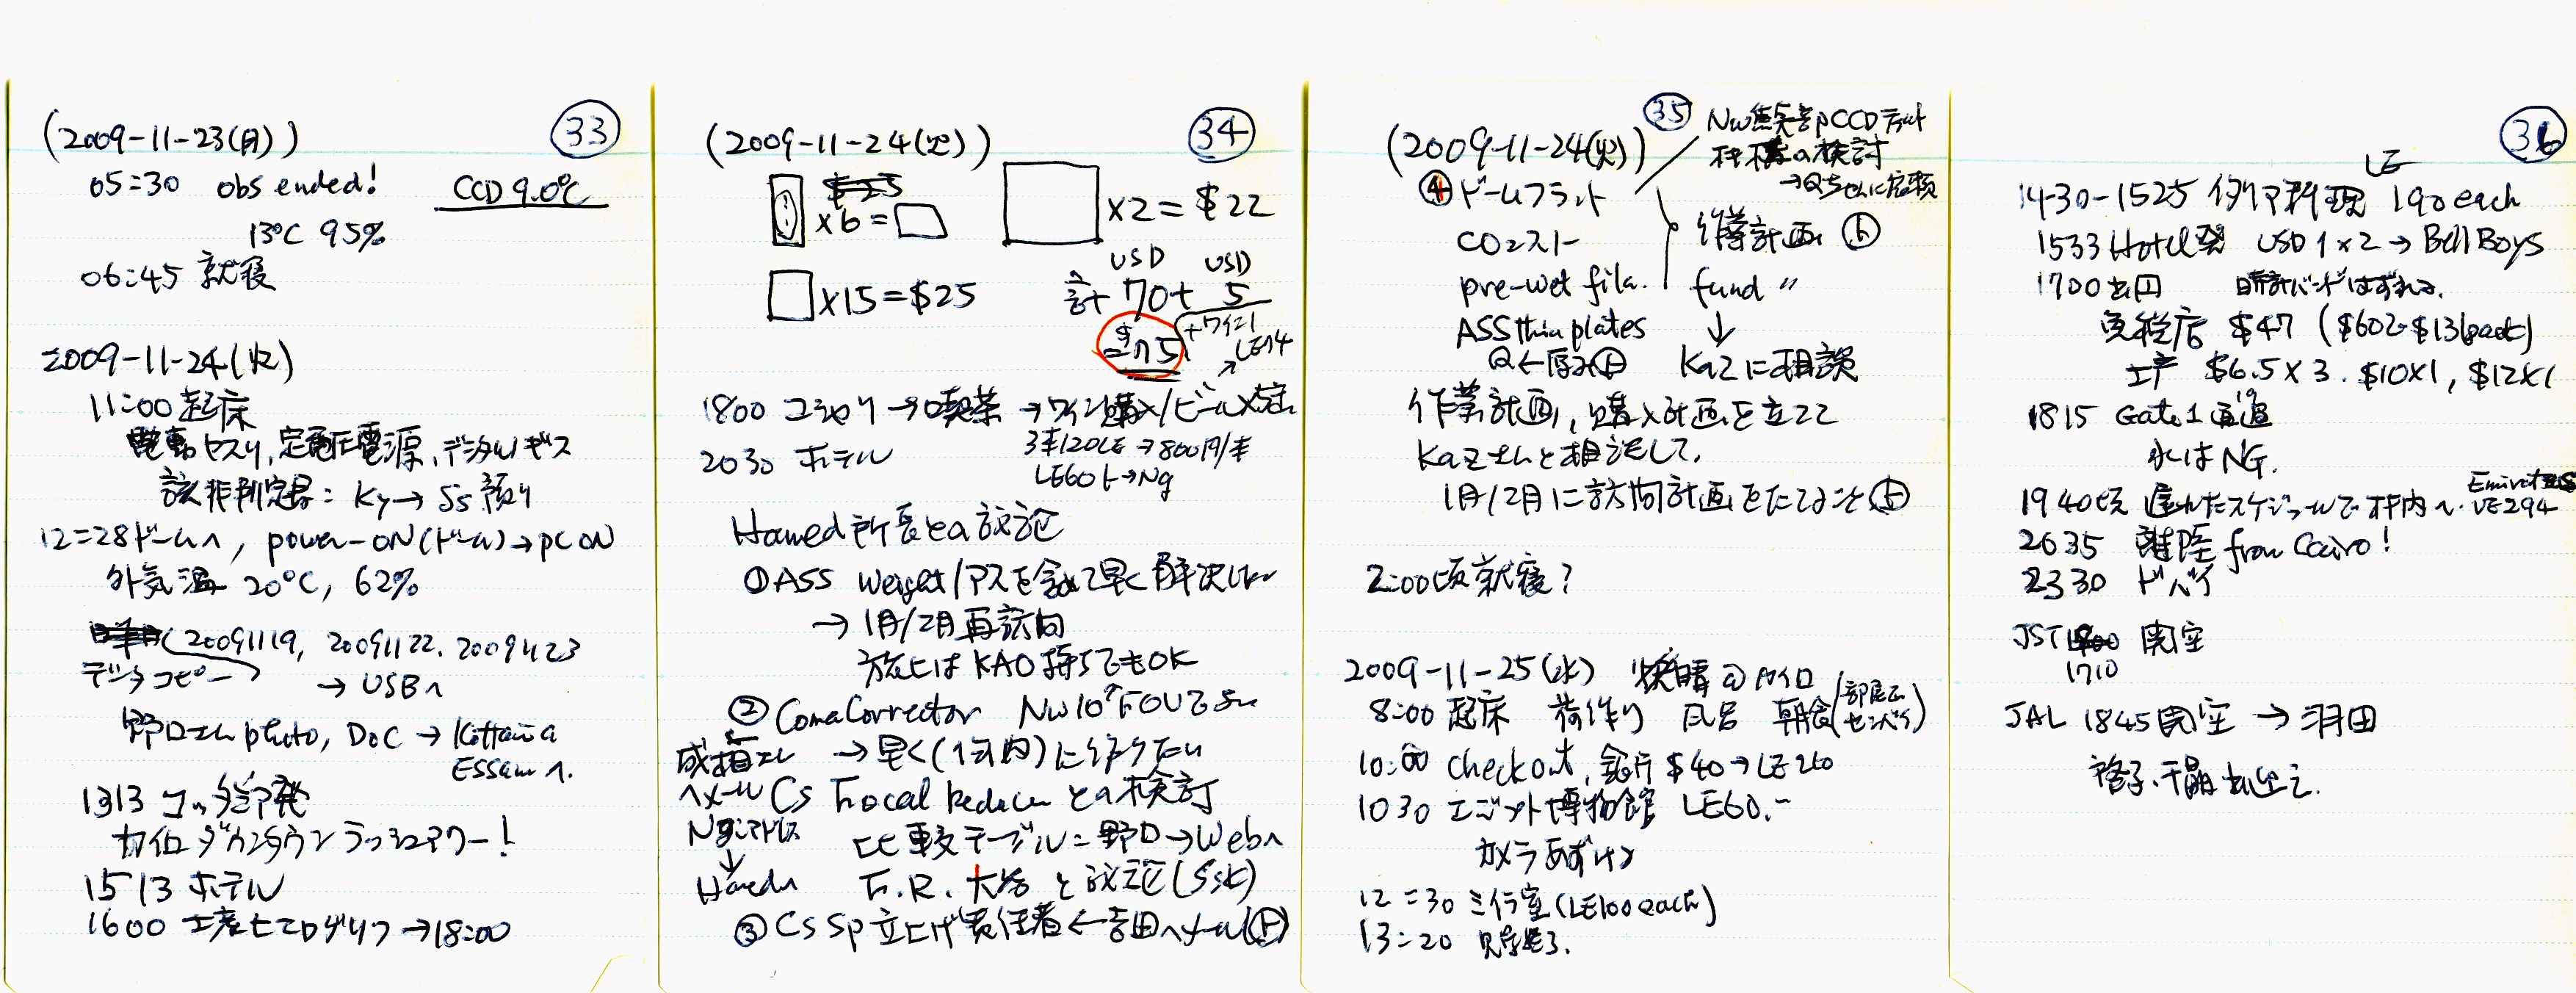 (2009-11-23(月)) 33
05:30 obs ended! CCD 9.0℃
13℃ 95%
06:45 就寝
2009-11-24(火)
11:00 起床
電動ヤスリ, 定電圧電源, デジタルノギス
該非判定書: Ky→Ss預り
12:28ドームへ, power-ON(ドーム)→PC ON
外気温 20℃, 62%
20091119, 20091122, 20091123
データコピー → USBへ
野口さん photo, DOC → Kottamia
ESSamへ.
1313 コッタミア発
カイロダウンタウン ラッシュアワー!
1513 ホテル
1600 土産ヒエログリフ→18:00
(2009-11-24(火)) 34
$25
×6= ×2=$22
×15=$25
計 USD 70+ USD 5
=$75 +ワイロ
LE14
1800 コシャリ→喫茶→ワイン購入/ビール
3本120LE→800円/本
2030 ホテル
LE60ト→Ng
Hamed所長との議論
①ASS Weight/アスを含めて早く解決したい
→1月/2月再訪問
KAO持ちでもOK
②Coma Corrector Nw10'FOVで
→早く(1年内)に行りたい
へメール Cs Focal Reducerとの検討
Ngアドレス 比較テーブル=野口→Webへ
↓
Hamedへ F.R. 大谷と議論(Ssk)
③Cs Sp 立上げ責任者←吉田へメール(ト)
35
(2009-11-24(火)) Nw焦点部CCDデュート
機構の検討
→Qちゃんに依頼
④ドームフラット
CO2スノー 作業計画 ト
pre-wet fila. fund 〃
ASS thin plates ↓
Q←厚み ト Kazに相談
作業計画, 購入計画を立てて
Kazさんと相談して,
1月/2月に訪問計画をたてること ト
2:00頃就寝?
2009-11-25(水) 快晴@カイロ
8:00 起床 荷作り 風呂 朝食(部屋でセンベイ)
10:00 checkout, 銀行 $40→LE 210
1030 エジプト博物館 LE60.-
カメラあずける
12:30 ミイラ室(LE100 each)
13:20 見学終了.
36
LE
14-30-1525 イタリア料理 190 each
1533 Hotel発 USD 1×2→Bell Boys
1700 出国 時計バンドはずれる.
免税店 $47 ($60
土産 $6.5×3. $10×1, $12×1
1815 Gate 1 通過
水はNG.
1940頃 遅れたスケジュールで機内へ. Emirates
2035 離陸 from Cairo!
2330 ドバイ
JST 関空
1710
JAL 1845関空→羽田